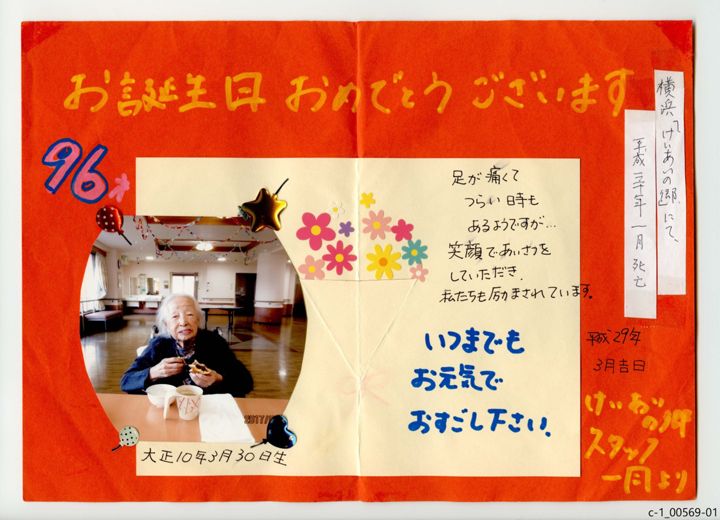 お誕生日 おめでとう ございます
96才
足が痛くて
つらい日時も
あるようですが…
笑顔であいさつを
していただき、
私たちも励まされています。
いつまでも
お元気で
おすごし下さい。
大正10年3月30日生
平成29年
3月吉日
スタッフ
一同より
横浜「けいあいの郷」にて、
平成三十年一月死亡
c-1_00569-01